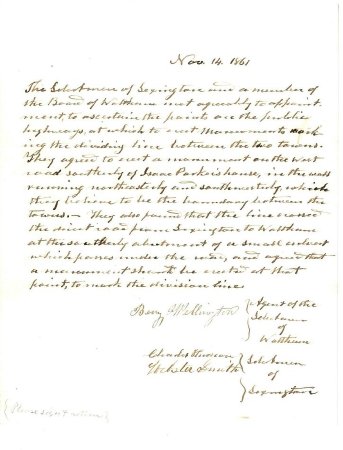 Nov. 14. 1861
The Selectmen of Lexington and a member of
the Board of Waltham met agreeably to appoint-
ment, to ascertain the points on the public
highways, at which to erect Monuments mark-
ing the dividing line between the two towns.
They agree to erect a monument on the west
road southerly of Isaac Parker's house, in the wall
running northeasterly and southwesterly, which
they believe to be the boundary between the
towns.— They also found that the line crosses
the direct road from Lexington to Waltham
at the southerly abutment of a small culvert
which passes under the road, and agreed that
a monument should be erected at that
point, to mark the division line.
Wellington
Agent of the
Selectmen
of
Waltham
Charles Hudson
Webster Smith
Selectmen
of
Lexington